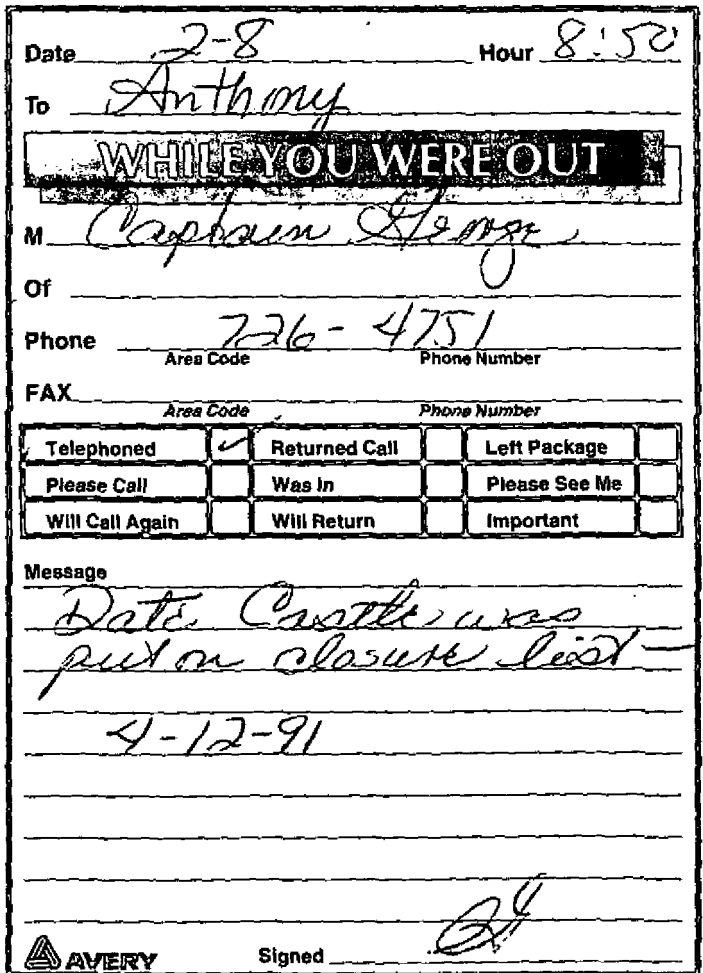 Date 2-8 Hour 8:50
To Anthony
WHILE YOU WERE OUT
M Captain George
Of
Phone 726-4751
Area Code Phone Number
FAX
Area Code Phone Number
Telephoned ✓ Returned Call Left Package
Please Call Was In Please See Me
Will Call Again Will Return Important
Message
Date Castle was
put on closure list —
4-12-91
AVERY Signed